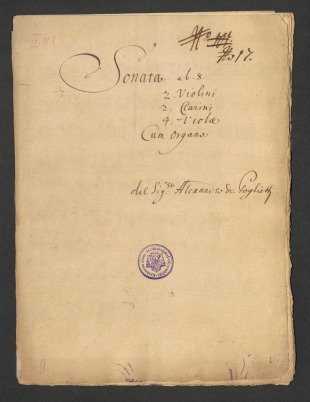 No 17.
Sonata ab. 8.
2 Violini
2. Clarini
4. Violæ
Cum Organo.
dal Sig.re Alexandro de Poglietti